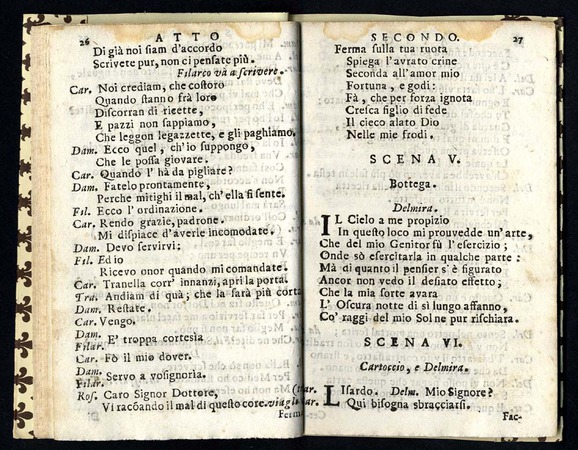 26 ATTO
Di già noi siam d'accordo
Scrivete pur, non ci pensate più.
Filarco và a scrivere.
Car. Noi crediam, che costoro
Quando stanno frà loro
Discorran di ricette,
E pazzi non sappiamo,
Che leggon legazzette, e gli paghiamo.
Dam. Ecco quel, ch'io suppongo,
Che le possa giovare.
Car. Quando l'hà da pigliare?
Dam. Fatelo prontamente,
Perche mitighi il mal, ch'ella si sente.
Fil. Ecco l'ordinazione.
Car. Rendo grazie, padrone.
Mi dispiace d'averle incomodate.
Dam. Devo servirvi:
Fil. Ed io
Ricevo onor quando mi comandate.
Car. Tranella corr' innanzi, apri la porta.
Tra. Andiam di quà; che la sarà più corta
Dam. Restate.
Car. Vengo.
Dam.
Filar. E' troppa cortesia
Car. Fò il mio dover.
Dam.
Filar. Servo a vosignoria.
Ros. Caro Signor Dottore,
Vi racóandi il mal di questo core.
Ferma
SECONDO. 27
Ferma sulla tua ruota
Spiega l'avrato crine
Seconda all'amor mio
Fortuna, e godi:
Fà, che per forza ignota
Cresca figlio di fede
Il cieco alato Dio
Nelle mie frodi.
SCENA V.
Bottega.
Delmira.
IL Cielo a me propizio
In questo loco mi provvedde un'arte,
Che del mio Genitor fù l'esercizio;
Onde sò esercitarla in qualche parte:
Mà di quanto il pensier s'è figurato
Ancor non vedo il desiato effetto;
Che la mia sorte avara
L'Oscura notte di sì lungo affanno,
Co' raggi del mio Sol ne pur rischiara.
SCENA VI.
Cartoccio, e Delmira.
LIsardo. Delm. Mio Signore?
Car. Qui bisogna sbracciarsi.
Fac-